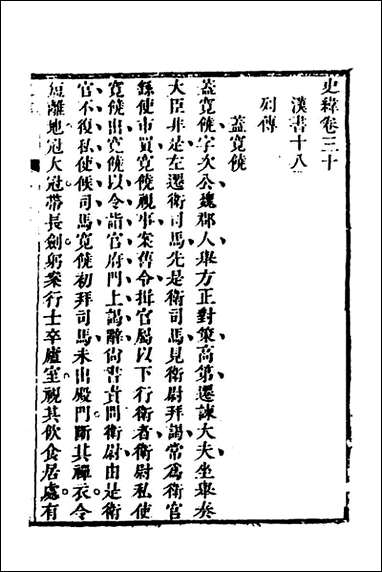 史緯卷三十
漢書十八
列傳
蓋寬饒
蓋寬饒字次公魏郡人舉方正對策高第遷諫大夫坐舉奏
大臣非是左遷衛司馬先是衛司馬見衛尉拜謁常爲衛官
繇使市買寬饒視事案舊令揖官屬以下行衛者衛尉私使
寬饒出寬饒以令詣官府門上謁辭尚書責問衛尉由是衛
官不復私使候司馬寬饒初拜司馬未出殿門斷其襌衣令
短離地冠大冠帶長劍躬案行士卒廬室視其飲食居處有